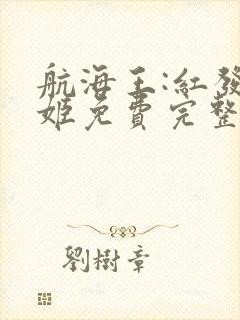 航海王:紅發
姬免費完整
劉樹章